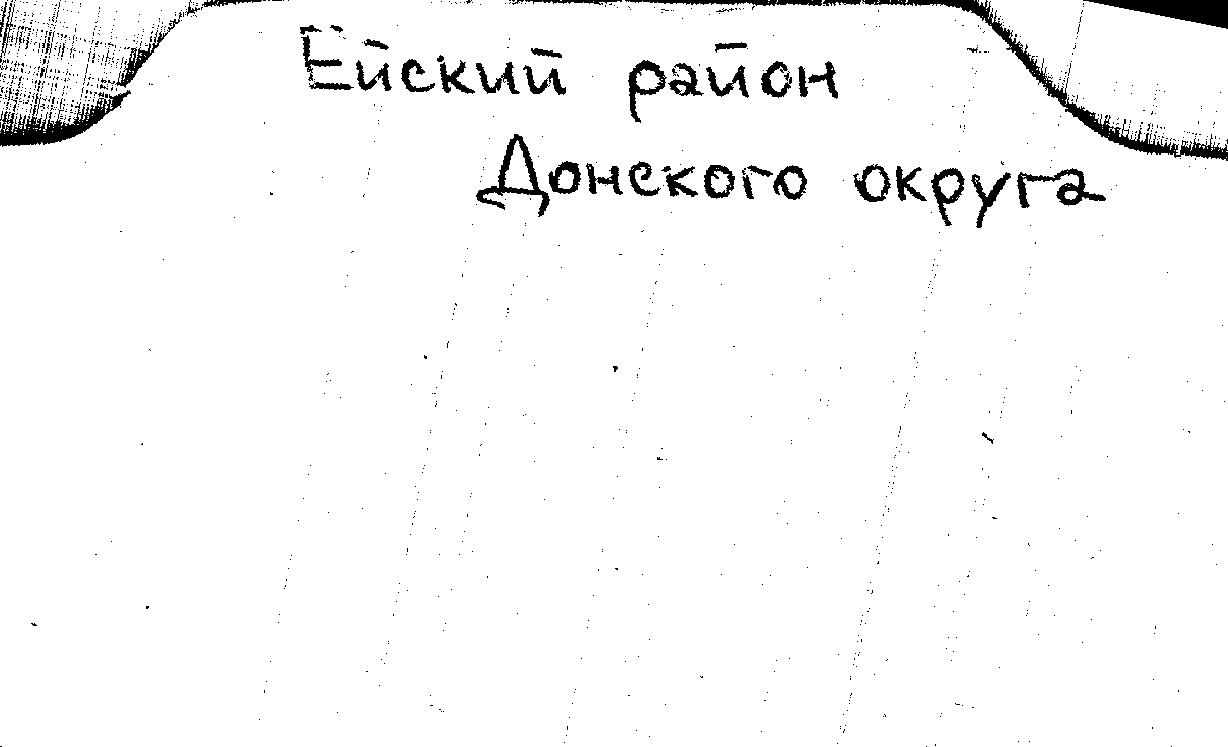 Ейский район
Донского округа